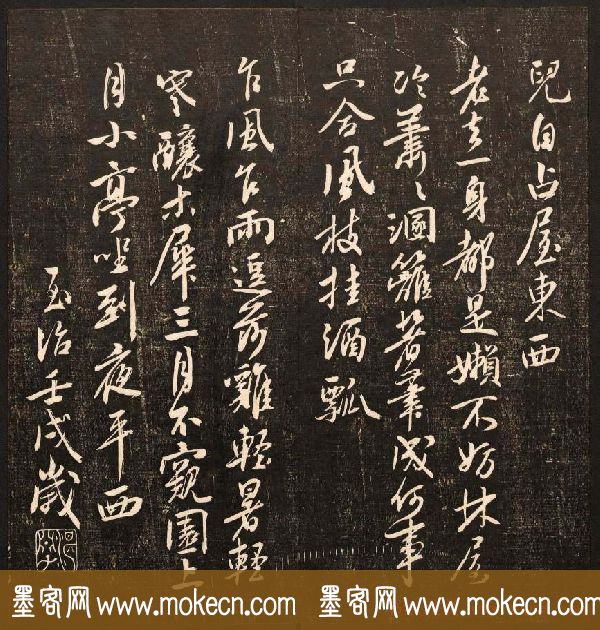 兒自占屋東西
老去一身都是嬾不妨林屋
冷蕭〻溷籬著筆成何事
只合風枝挂酒瓢
乍風乍雨逗莎雞輕暑輕
寒釀木犀三月不窺園上
月小亭坐到夜平西
至治壬戌歲
墨客网 www.mokecn.com 墨客网 www.mokecn.com